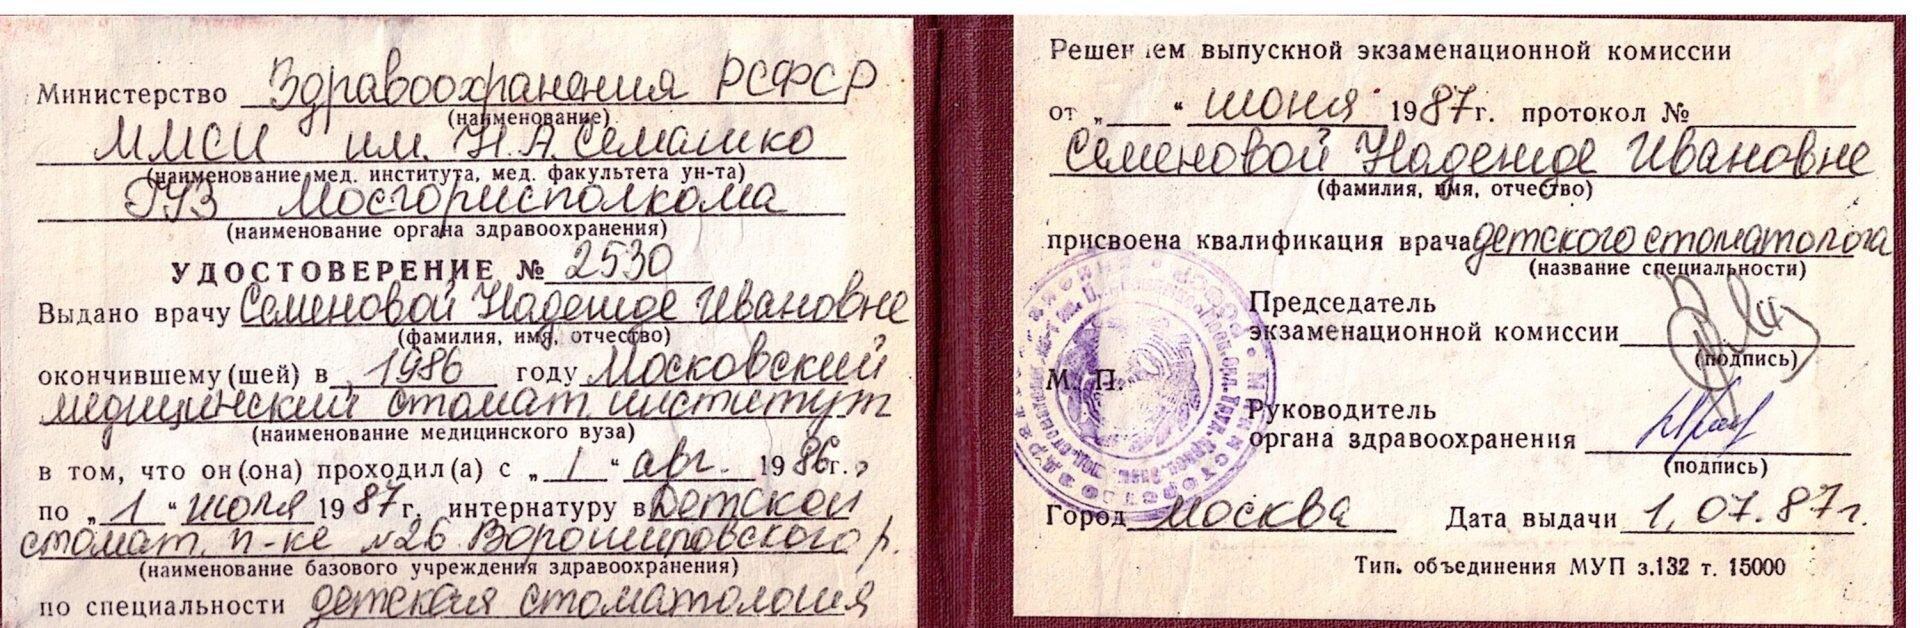 Министерство Здравоохранения РСФСР
(наименование)
ММСИ им. Н.А. Семашко
(наименование мед. института, мед. факультета ун-та)
ГУЗ Мосгорисполкома
(наименование органа здравоохранения)
УДОСТОВЕРЕНИЕ № 2530
Выдано врачу Семеновой Надежде Ивановне
(фамилия, имя, отчество)
окончившему (шей) в 1986 году Московский
медицинский стомат. институт
(наименование медицинского вуза)
в том, что он (она) проходил (а) с „ 1 “ авг. 1986г.,
по „ 1 “ июля 1987г. интернатуру в Детской
стомат. п-ке №26 Ворошиловского р.
(наименование базового учреждения здравоохранения)
по специальности детская стоматология
Решением выпускной экзаменационной комиссии
от „ “ июня 1987г. протокол №
Семеновой Надежде Ивановне
(фамилия, имя, отчество)
присвоена квалификация врача детского стоматолога
(название специальности)
Председатель
экзаменационной комиссии
(подпись)
М. П.
Руководитель
органа здравоохранения
(подпись)
Город Москва Дата выдачи 1.07.87г.
Тип. объединения МУП з.132 т. 15000